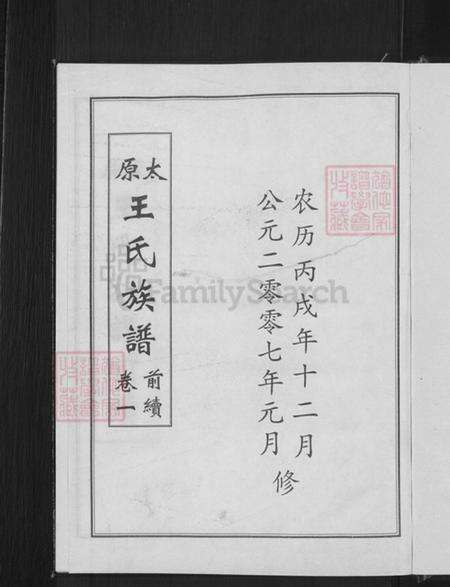 农历丙戌年十二月
公元二零零七年元月
修
太原
王氏族譜
前續
卷一
FamilySearch